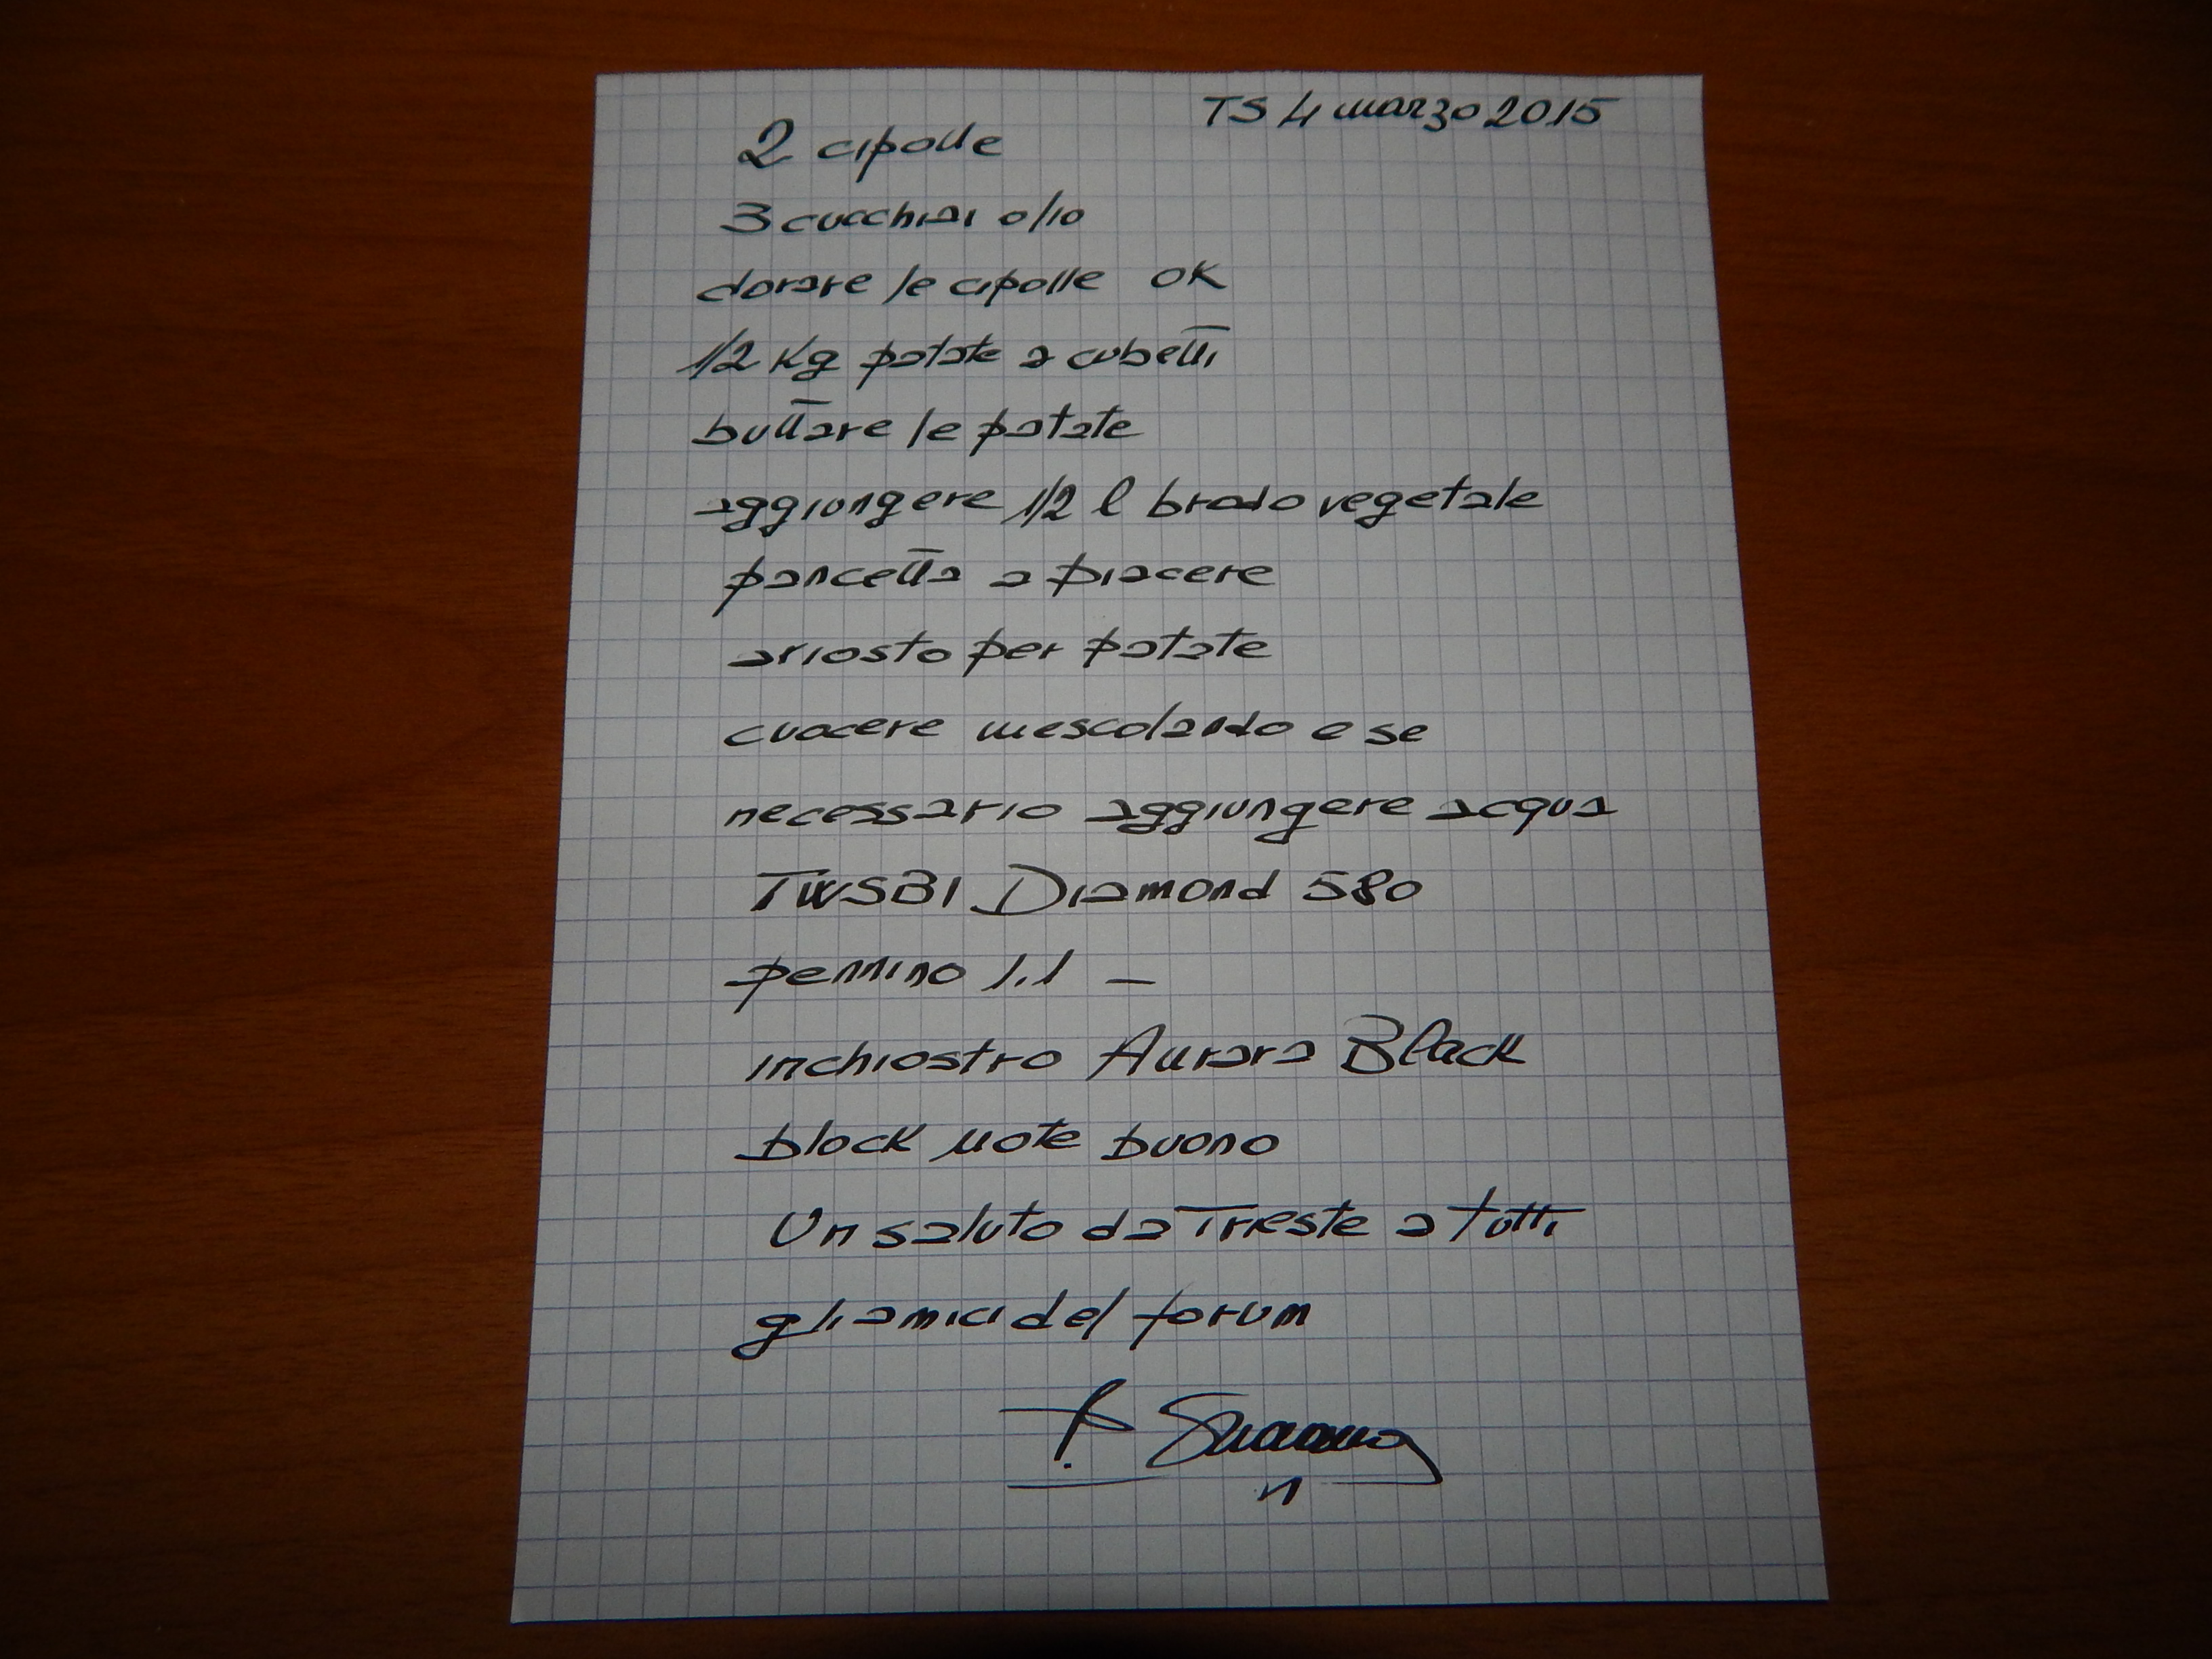 TS 4 marzo 2015
2 cipolle
3 cucchiai olio
dorare le cipolle OK
1/2 Kg patate a cubetti
buttare le patate
aggiungere 1/2 l brodo vegetale
pancetta a piacere
ariosto per patate
cuocere mescolando e se
necessario aggiungere acqua
TWSBI Diamond 580
pennino 1.1 —
inchiostro Aurora Black
block note buono
Un saluto da Trieste a tutti
gli amici del forum